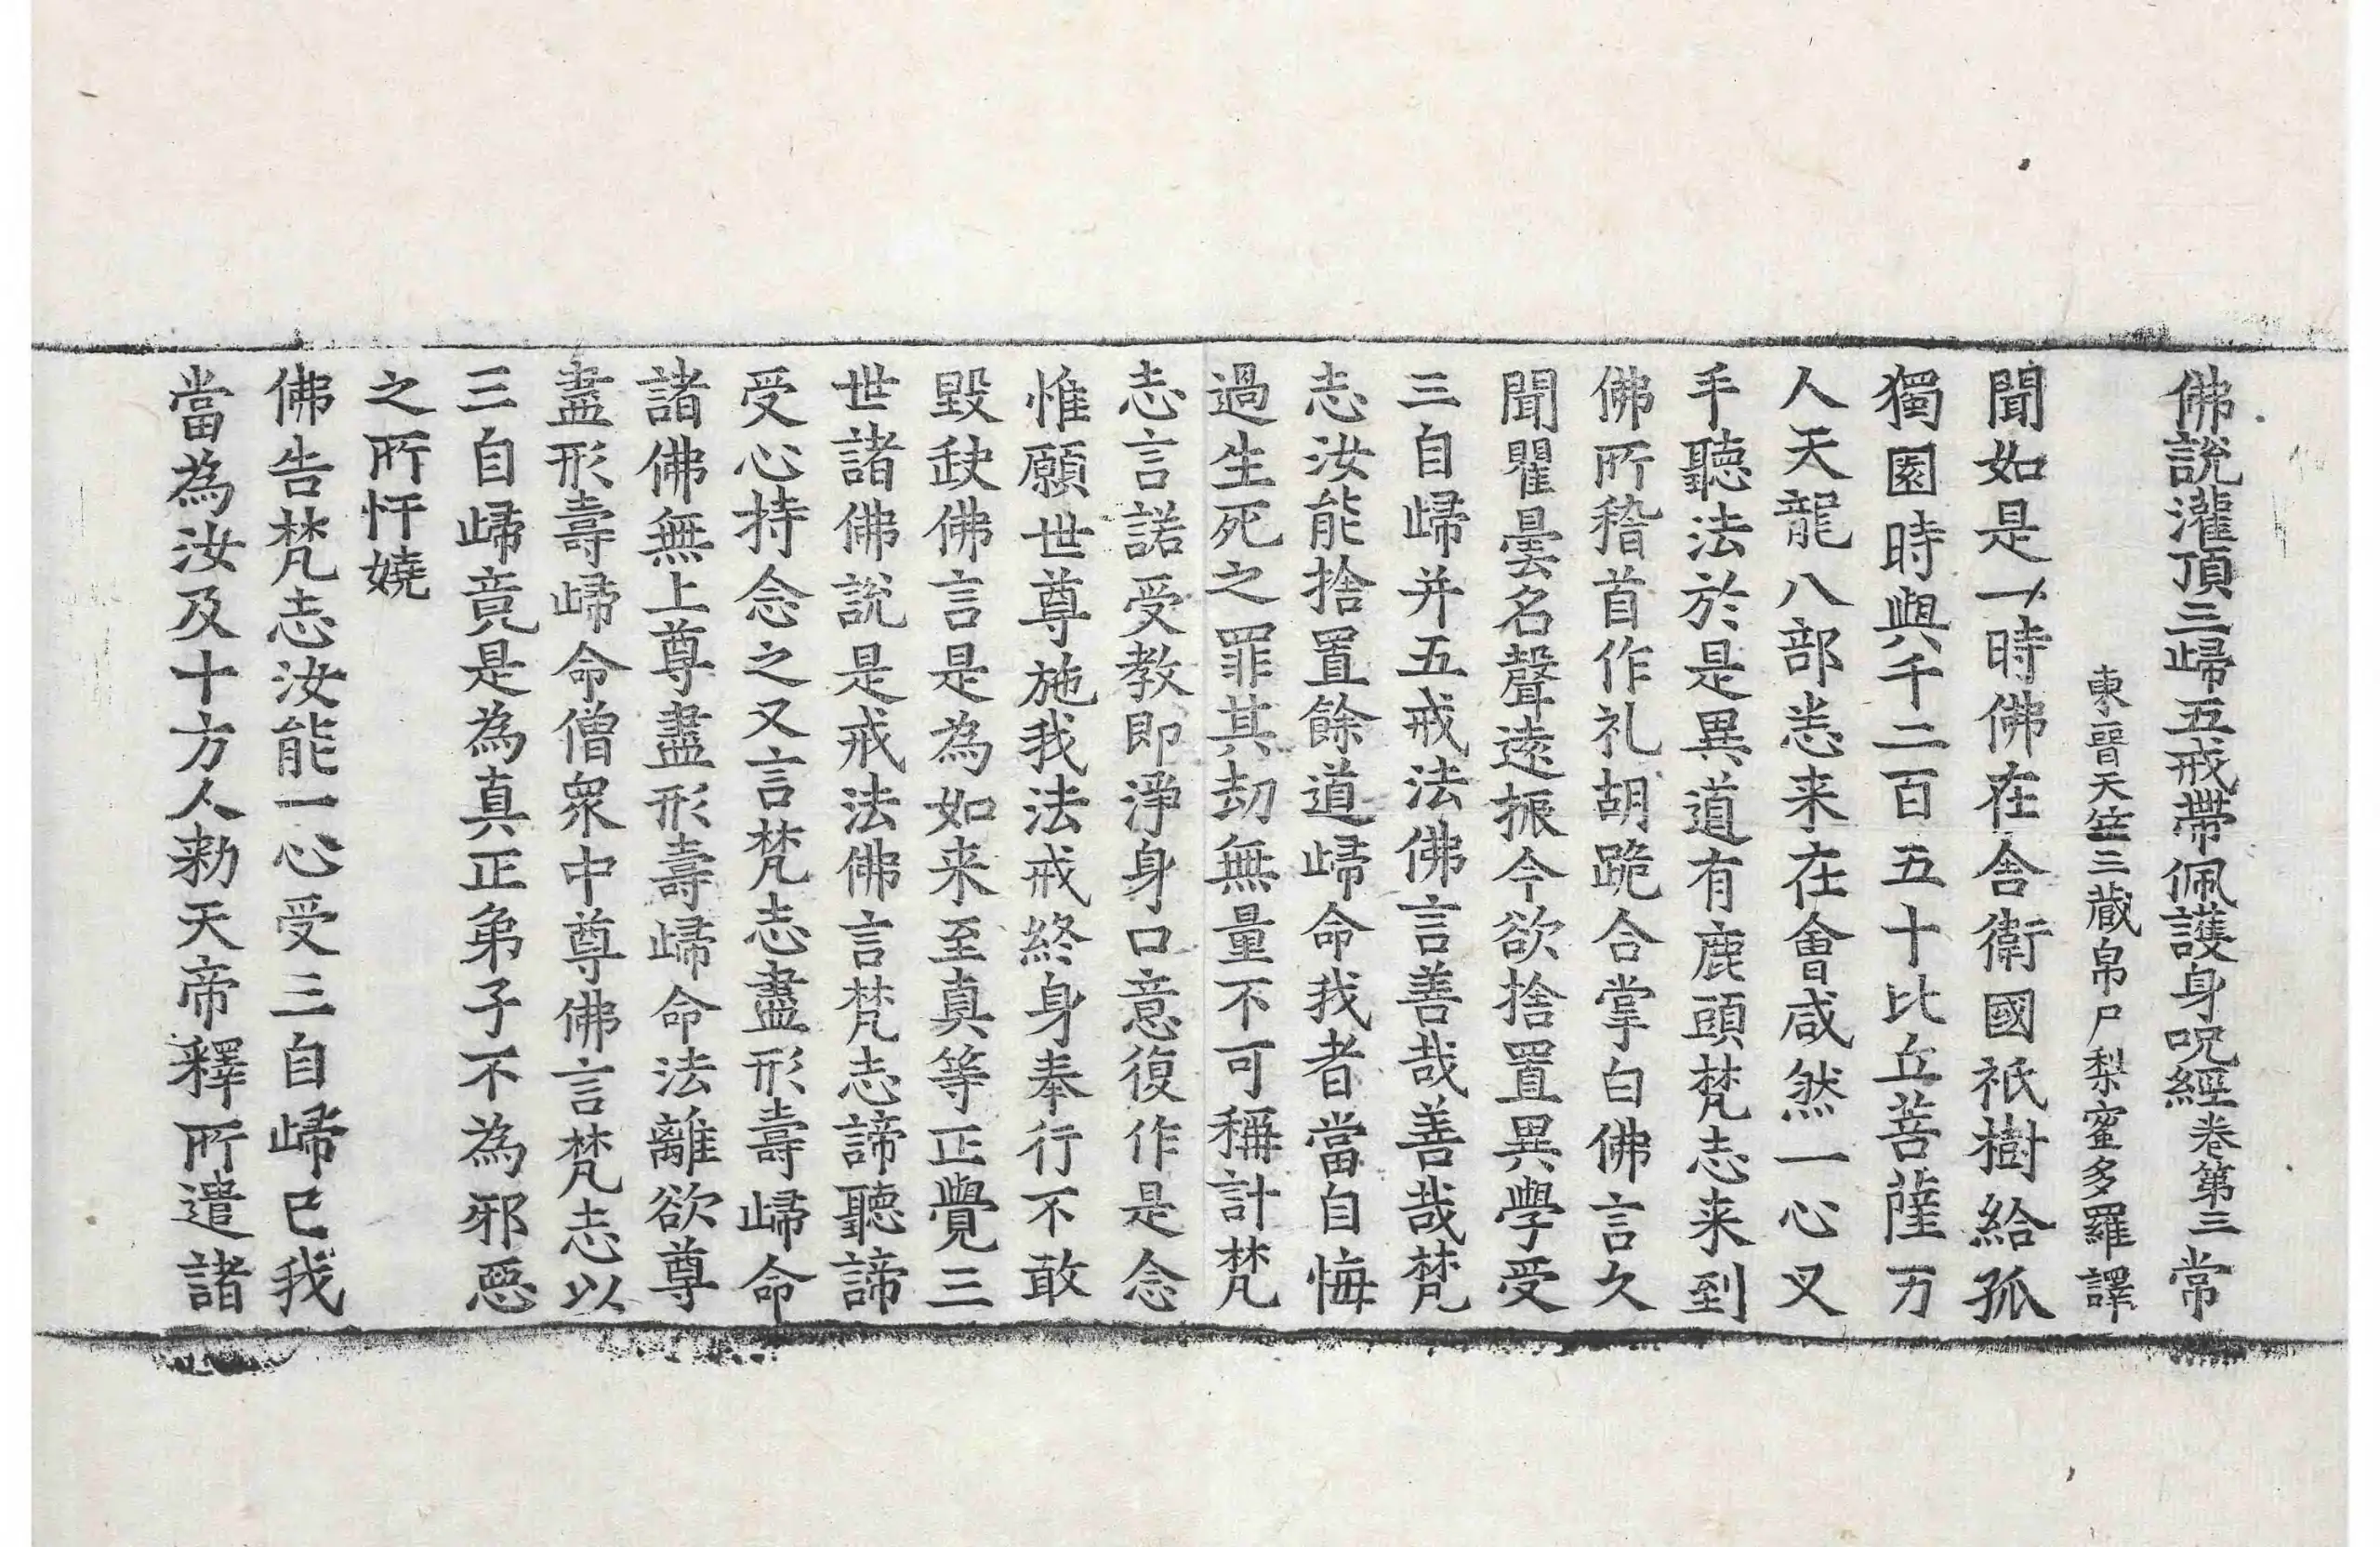 佛說灌頂三歸五戒帶佩護身呪經卷第三 常
東晉天竺三藏帛尸梨蜜多羅譯
聞如是一時佛在舍衛國祇樹給孤
獨園時與千二百五十比丘菩薩万
人天龍八部悉来在會咸然一心叉
手聽法於是異道有鹿頭梵志来到
佛所稽首作礼胡跪合掌白佛言久
聞瞿曇名聲遠振今欲捨置異學受
三自歸并五戒法佛言善哉善哉梵
志汝能捨置餘道歸命我者當自悔
過生死之罪其劫無量不可稱計梵
志言諾受教即淨身口意復作是念
惟願世尊施我法戒終身奉行不敢
毀缺佛言是為如来至真等正覺三
世諸佛說是戒法佛言梵志諦聽諦
受心持念之又言梵志盡形壽歸命
諸佛無上尊盡形壽歸命法離欲尊
盡形壽歸命僧眾中尊佛言梵志以
三自歸竟是為真正弟子不為邪惡
之所忏嬈
佛告梵志汝能一心受三自歸已我
當為汝及十方人勑天帝釋所遣諸